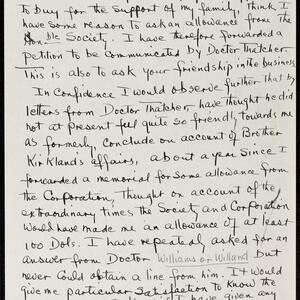 to buy for the support of my family, think I
have some reason to ask an allowance from the
Hon ble Society. I have therefore forwarded a
Petition to be communicated by Doctor Thatcher.
This is also to ask your friendship in the business
In Confidence I would observe further that by
letters from Doctor Thatcher, have thought he did
not at present feel quite so friendly towards me
as formerly, conclude on account of Brother
Kirklands affairs, about a year since I
forwarded a memorial for some allowance from
the Corporation, Thought on account of the
extraordinary times the Society and Corporation
would have made me an allowance of at least
100 Dols. I have repeatedly asked for an
answer from Doctor Williams or Willard but
never Could obtain a line from him. It would
give me particular Satisfaction to know the
I have given any